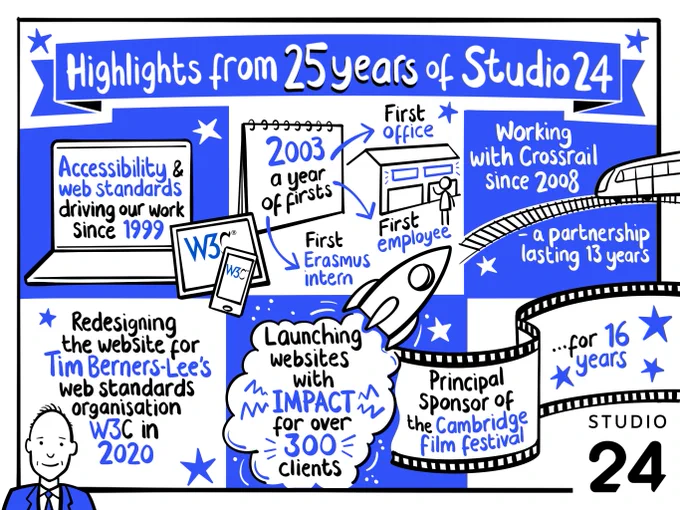 Highlights from 25 years of Studio 24
Accessibility &
web standards
driving our work
since 1999
W3C®
W3C®
2003
a year
of firsts
First
office
First
employee
First
Erasmus
intern
Working
with Crossrail
since 2008
- a partnership
lasting 13 years
Redesigning
the website for
Tim Berners-Lee's
web standards
organisation
W3C in
2020
Launching
websites
with
IMPACT
for over
300
clients
Principal
Sponsor of
the Cambridge
film festival
...for 16
years
STUDIO
24